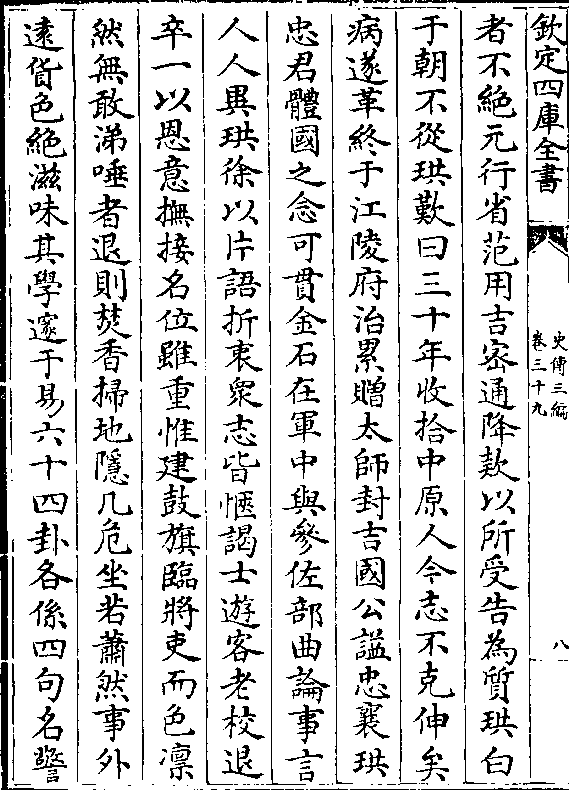 欽定四庫全書
史傳三編
卷三十九
八
者不絶元行省范用吉密通降款以所受告為質珙白
于朝不從珙歎曰三十年收拾中原人今志不克伸矣
病遂革終于江陵府治累贈太師封吉國公諡忠襄珙
忠君體國之念可貫金石在軍中與參佐部曲論事言
人人異珙徐以片語折衷衆志皆愜謁士遊客老校退
卒一以恩意撫接名位雖重惟建鼓旗臨將吏而色凛
然無敢涕唾者退則焚香掃地隱几危坐若蕭然事外
逺貨色絶滋味其學邃于易六十四卦各係四句名警